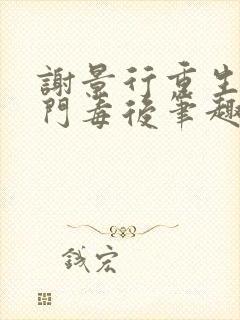 謝景行重生
門毒後筆趣
錢宏